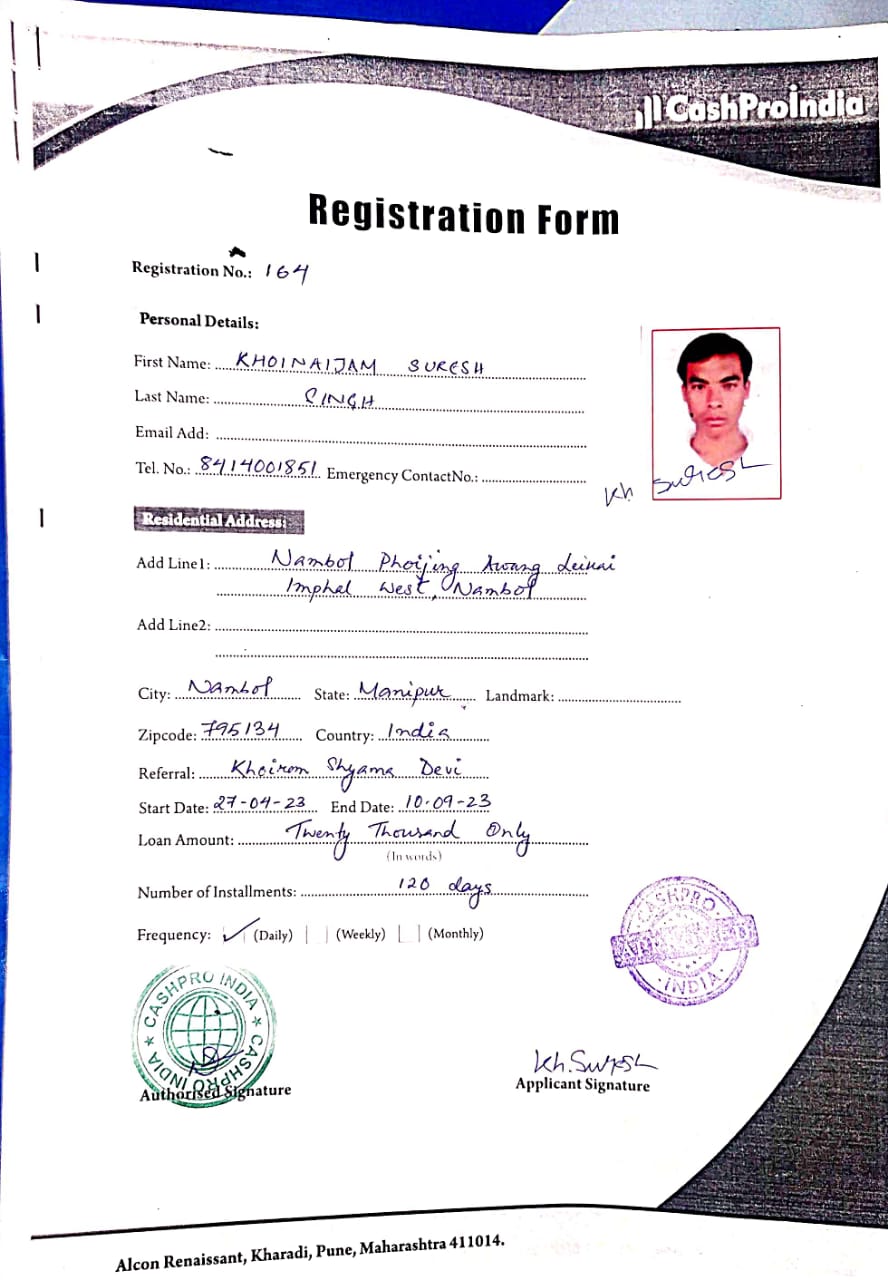 CashProIndia
Registration Form
Registration No.: 164
Personal Details:
First Name: KHOINAIJAM SURESH
Last Name: SINGH
Email Add:
Tel. No.: 8414001851 Emergency ContactNo.:
Kh Suresh
Residential Address:
Add Line1: Nambol Phoijing Awang Leikai
Imphal West, Nambol
Add Line2:
City: Nambol State: Manipur Landmark:
Zipcode: 795134 Country: India
Referral: Khoirom Shyama Devi
Start Date: 27-04-23 End Date: 10-09-23
Loan Amount: Twenty Thousand Only
(In words)
Number of Installments: 120 days
Frequency: (Daily) (Weekly) (Monthly)
CASHPRO
INDIA
CASHPRO INDIA ★ CASHPRO INDIA ★
Kh. Suresh
Authorised Signature Applicant Signature
Alcon Renaissant, Kharadi, Pune, Maharashtra 411014.